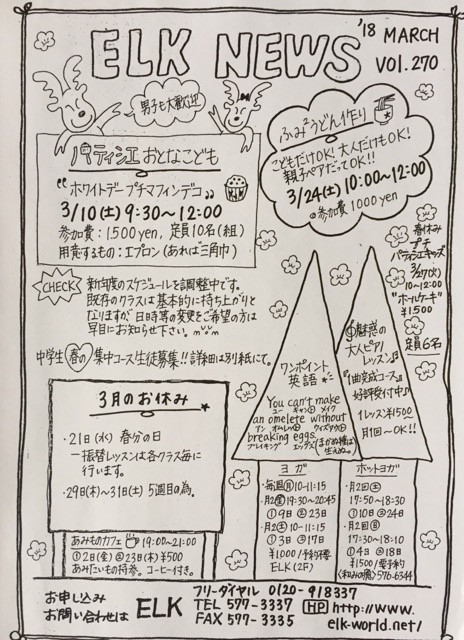 ELK NEWS '18 MARCH
VOL.270
男子も大歓迎
パティシエ おとなこども
"ホワイトデー プチマフィンデコ"
3/10(土) 9:30~12:00
参加費:1.500yen, 定員10名(組)
用意するもの:エプロン(あれば三角巾)
ふみ²うどん作り
こどもだけOK!大人だけもOK!
親子ペアだってOK!!
3/24(土) 10:00~12:00
参加費 1000yen
春休み
プチ
パティシエキッズ
3/27(火)
10~12:00
"ホールケーキ"
¥1,500
定員6名
CHECK
新年度のスケジュールを調整中です。
既存のクラスは基本的に持ち上がりと
なりますが 日時等の変更をご希望の方は
早目にお知らせ下さい。
中学生 春の 集中コース生徒募集!! 詳細は別紙にて。
3月のお休み
・21日(水) 春分の日
一振替レッスンは各クラス毎に
行います。
・29日(木)~31日(土) 5週目の為。
あみものカフェ 19:00~21:00
①2日(金) ②23日(木) ¥500
あみたいもの持参。コーヒー付き。
ワンポイント
英語
You can't make
ユー キャント メイク
an omelete without
アン オムレット ウィズアウト
breaking eggs.
ブレイキング エッグズ
(まかぬ種は
生えぬ。)
魅惑の
大人ピアノ
レッスン
"1曲完成コース"
好評受付中♪
1レッスン¥1500
月1回~OK!!
ヨガ
・毎週(月)10-11:15
・月2(金)19:30~20:45
①9日 ②23日
・月2(土)10-11:15
①3日 ②17日
¥1000/予約優
ELK (2F)
ホットヨガ
・月2回(土)
17:50~18:30
①10日 ②24日
・月2回(日)
17:30~18:10
①4日 ②18日
¥1500/要予約
576-6344
お申し込み
お問い合わせは ELK
フリーダイヤル 0120-918337
TEL 577-3337
FAX 577-3335
HP http://www.
elk-world.net/